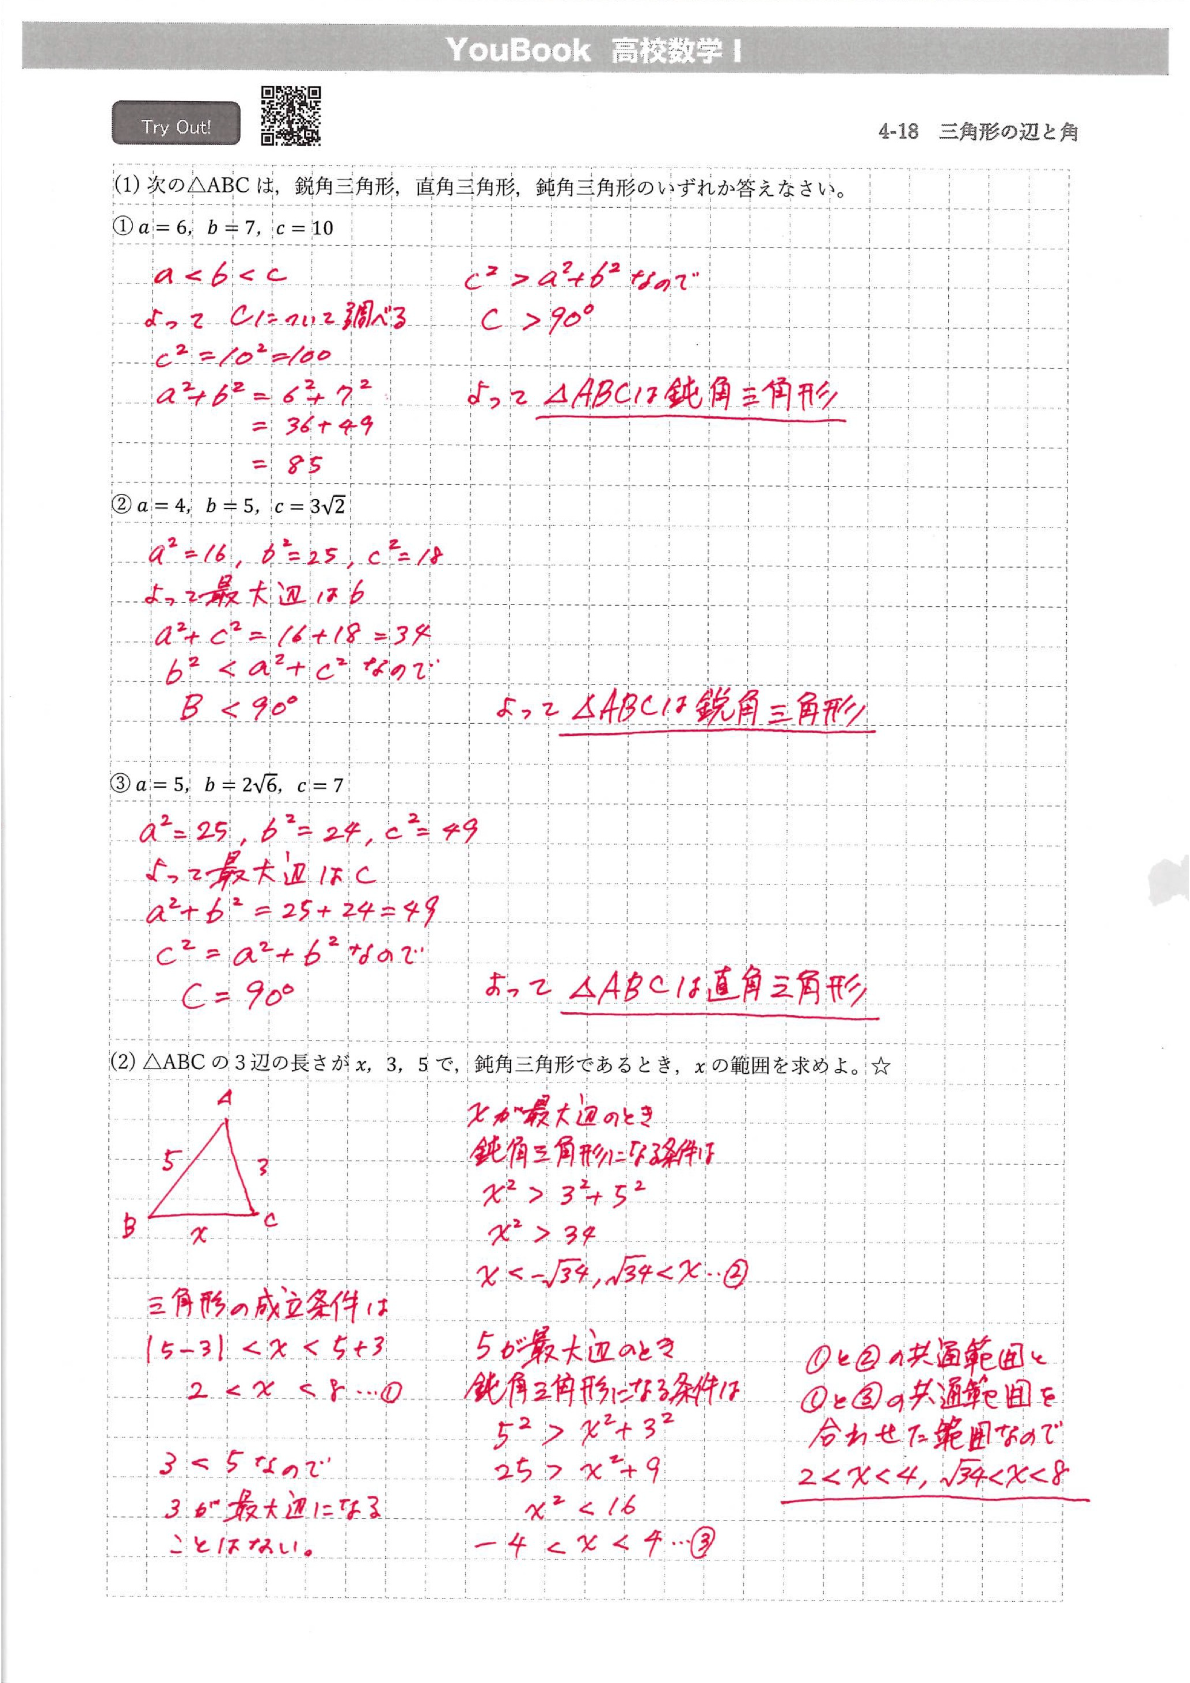 YouBook 高校数学 I
Try Out!
4-18 三角形の辺と角
(1) 次の△ABC は，鋭角三角形，直角三角形，鈍角三角形のいずれか答えなさい。
① a = 6, b = 7, c = 10
a < b < c
よって Cについて調べる
c² = 10² = 100
a² + b² = 6² + 7²
= 36 + 49
= 85
c² > a² + b² なので
C > 90°
よって △ABCは鈍角三角形
② a = 4, b = 5, c = 3√2
a² = 16, b² = 25, c² = 18
よって最大辺は b
a² + c² = 16 + 18 = 34
b² < a² + c² なので
B < 90°
よって △ABCは鋭角三角形
③ a = 5, b = 2√6, c = 7
a² = 25, b² = 24, c² = 49
よって最大辺は c
a² + b² = 25 + 24 = 49
c² = a² + b² なので
C = 90°
よって △ABCは直角三角形
(2) △ABC の 3 辺の長さが x, 3, 5 で，鈍角三角形であるとき，x の範囲を求めよ。☆
A
5
3
B
x
C
三角形の成立条件は
|5-3| < x < 5+3
2 < x < 8 …①
3 < 5 なので
3 が最大辺になる
ことはない。
xが最大辺のとき
鈍角三角形になる条件は
x² > 3² + 5²
x² > 34
x < -√34, √34 < x …②
5が最大辺のとき
鈍角三角形になる条件は
5² > x² + 3²
25 > x² + 9
x² < 16
-4 < x < 4 …③
①と②の共通範囲と
①と③の共通範囲を
合わせた範囲なので
2 < x < 4, √34 < x < 8